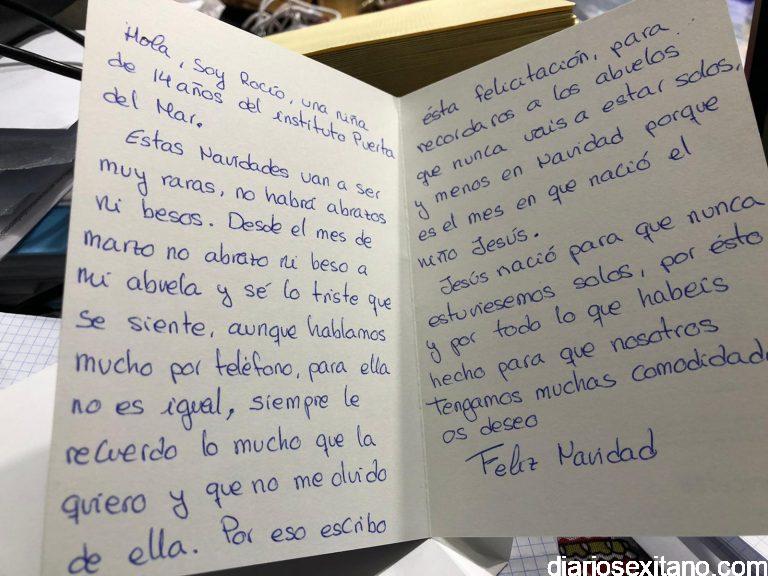 Hola, soy Rocío, una niña
de 14 años del instituto Puerta
del Mar.
Estas Navidades van a ser
muy raras, no habrá abrazos
ni besos. Desde el mes de
marzo no abrazo ni beso a
mi abuela y sé lo triste que
se siente, aunque hablamos
mucho por teléfono, para ella
no es igual, siempre le
recuerdo lo mucho que la
quiero y que no me olvido
de ella. Por eso escribo
ésta felicitación, para
recordaros a los abuelos
que nunca vais a estar solos,
y menos en Navidad porque
es el mes en que nació el
niño Jesús.
Jesús nació para que nunca
estuviesemos solos, por ésto
y por todo lo que habeis
hecho para que nosotros
tengamos muchas comodidade
os deseo
Feliz Navidad
diariosexitano.com